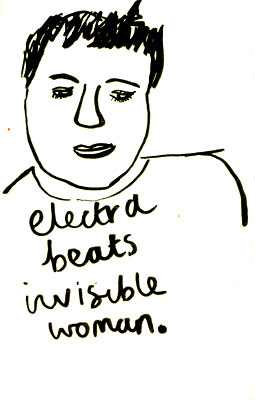 electra
beats
invisible
woman.